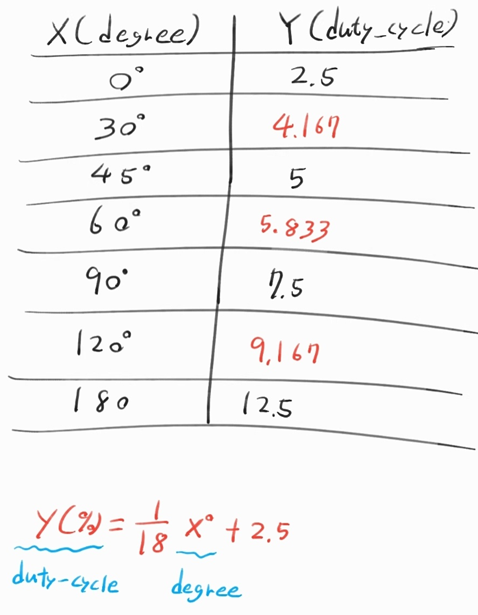 X(degree) Y(duty_cycle)
0° 2.5
30° 4.167
45° 5
60° 5.833
90° 7.5
120° 9.167
180 12.5
Y(%) = 1/18 X° + 2.5
duty-cycle degree